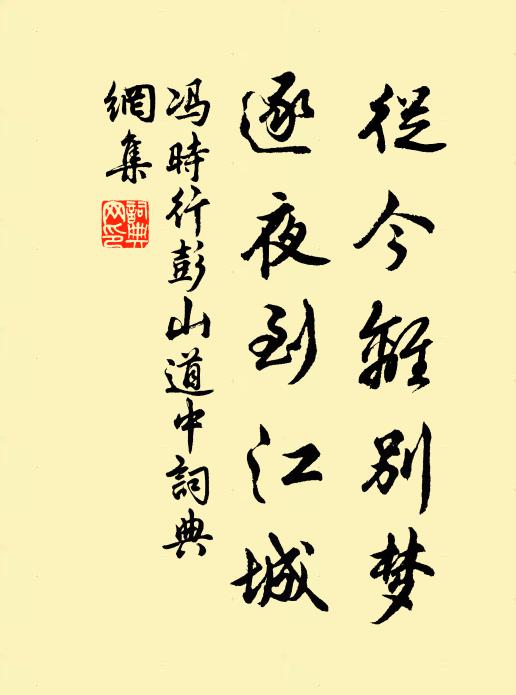 從今離别梦
逐夜到江城
冯時行彭山道中詞典
網集
詞典
网印